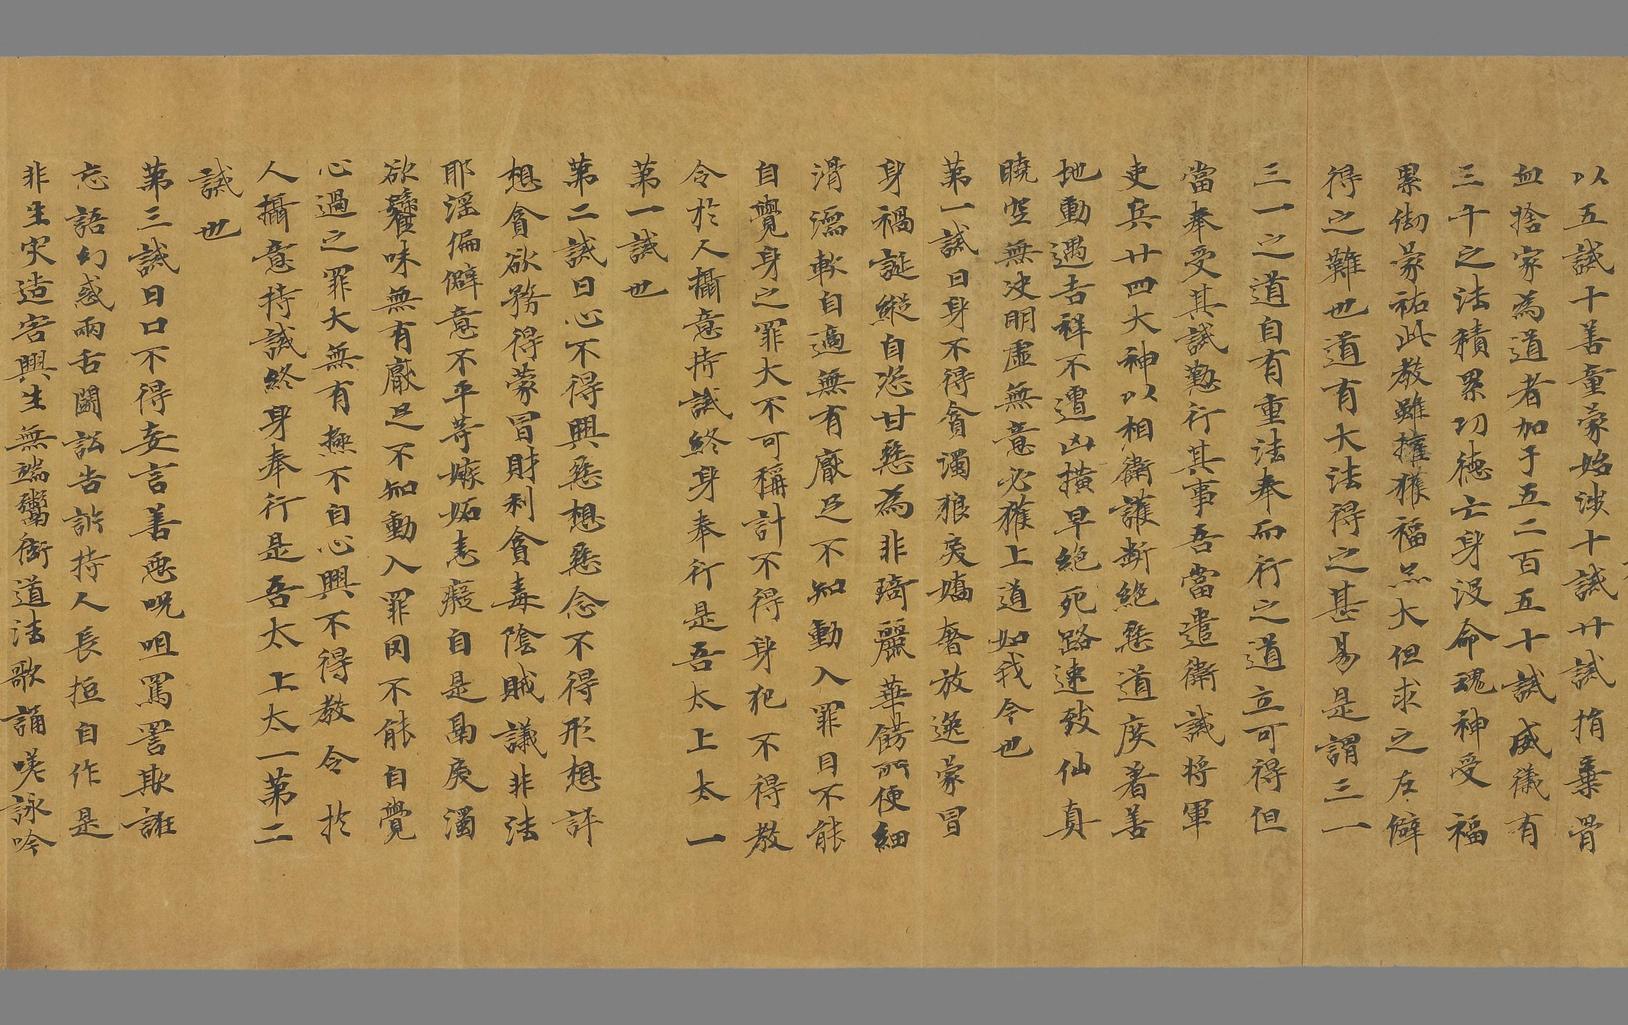 以五誡十善童蒙始涉十誡廿誡捐棄骨
血捨家為道者加于五二百五十誡威儀有
三千之法積累功德亡身沒命魂神受福
累劫蒙祐此教雖擁獲福亦大但求之左僻
得之難也道有大法得之甚易是謂三一
三一之道自有重法奉而行之道立可得但
當奉受其誡懃行其事吾當遣衛誡將軍
吏兵廿四大神以相衛護断絶惡道度著善
地動遇吉祥不遭凶横早絶死路速致仙真
曉空無决明虛無意必獲上道如我今也
第一誡曰身不得貪濁狼戾嬌奢放逸蒙冒
身禍誕縱自恣甘惡為非琦麗華餝所便細
滑濡軟自適無有厭足不知動入罪目不能
自覺身之罪大不可稱計不得身犯不得教
令於人攝意持誡終身奉行是吾太上太一
第一誡也
第二誡曰心不得興惡想惡念不得形想評
想貪欲務得蒙冒財利貪毒陰賊議非法
耶淫偏僻意不平等嫉妬恚癡自是勗戾濁
欲穢味無有厭足不知動入罪罔不能自覺
心過之罪大無有極不自心興不得教令於
人攝意持誡終身奉行是吾太上太一第二
誡也
第三誡曰口不得妄言善惡呪咀罵詈欺誑
忘語幻惑兩舌鬪訟告訴持人長短自作是
非生灾造害興生無端鬻衒道法歌誦嘆詠吟